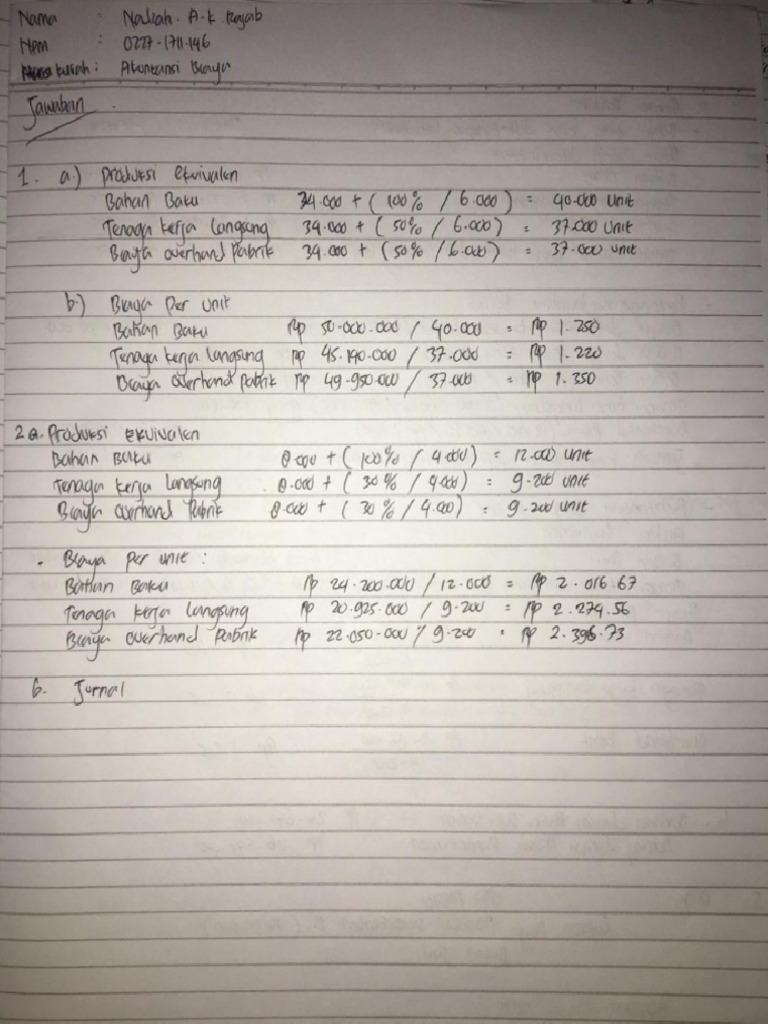 Nama : Nadiah. A.k Rajab
Npm : 0227-1711-146
kuliah : Akuntansi Biaya
Jawaban
1. a.) Produksi ekuivalen
Bahan Baku 34.000 + (100% / 6.000) = 40.000 unit
Tenaga kerja Langsung 34.000 + (50% / 6.000) = 37.000 unit
Biaya overhand Pabrik 34.000 + (50% / 6.000) = 37.000 unit
b.) Biaya Per unit
Bahan Baku Rp 50.000.000 / 40.000 = Rp 1.250
Tenaga kerja Langsung Rp 45.140.000 / 37.000 = Rp 1.220
Biaya overhand pabrik Rp 49.950.000 / 37.000 = Rp 1.350
2 a. Produksi ekuivalen
Bahan Baku 8.000 + (100% / 4.000) = 12.000 unit
Tenaga kerja Langsung 8.000 + (30% / 4.000) = 9.200 unit
Biaya overhand Pabrik 8.000 + (30% / 4.000) = 9.200 unit
- Biaya per unit :
Bahan Baku Rp 24.200.000 / 12.000 = Rp 2.016.67
Tenaga kerja Langsung Rp 20.925.000 / 9.200 = Rp 2.274.56
Biaya overhand Pabrik Rp 22.050.000 / 9.200 = Rp 2.396.73
b. Jurnal